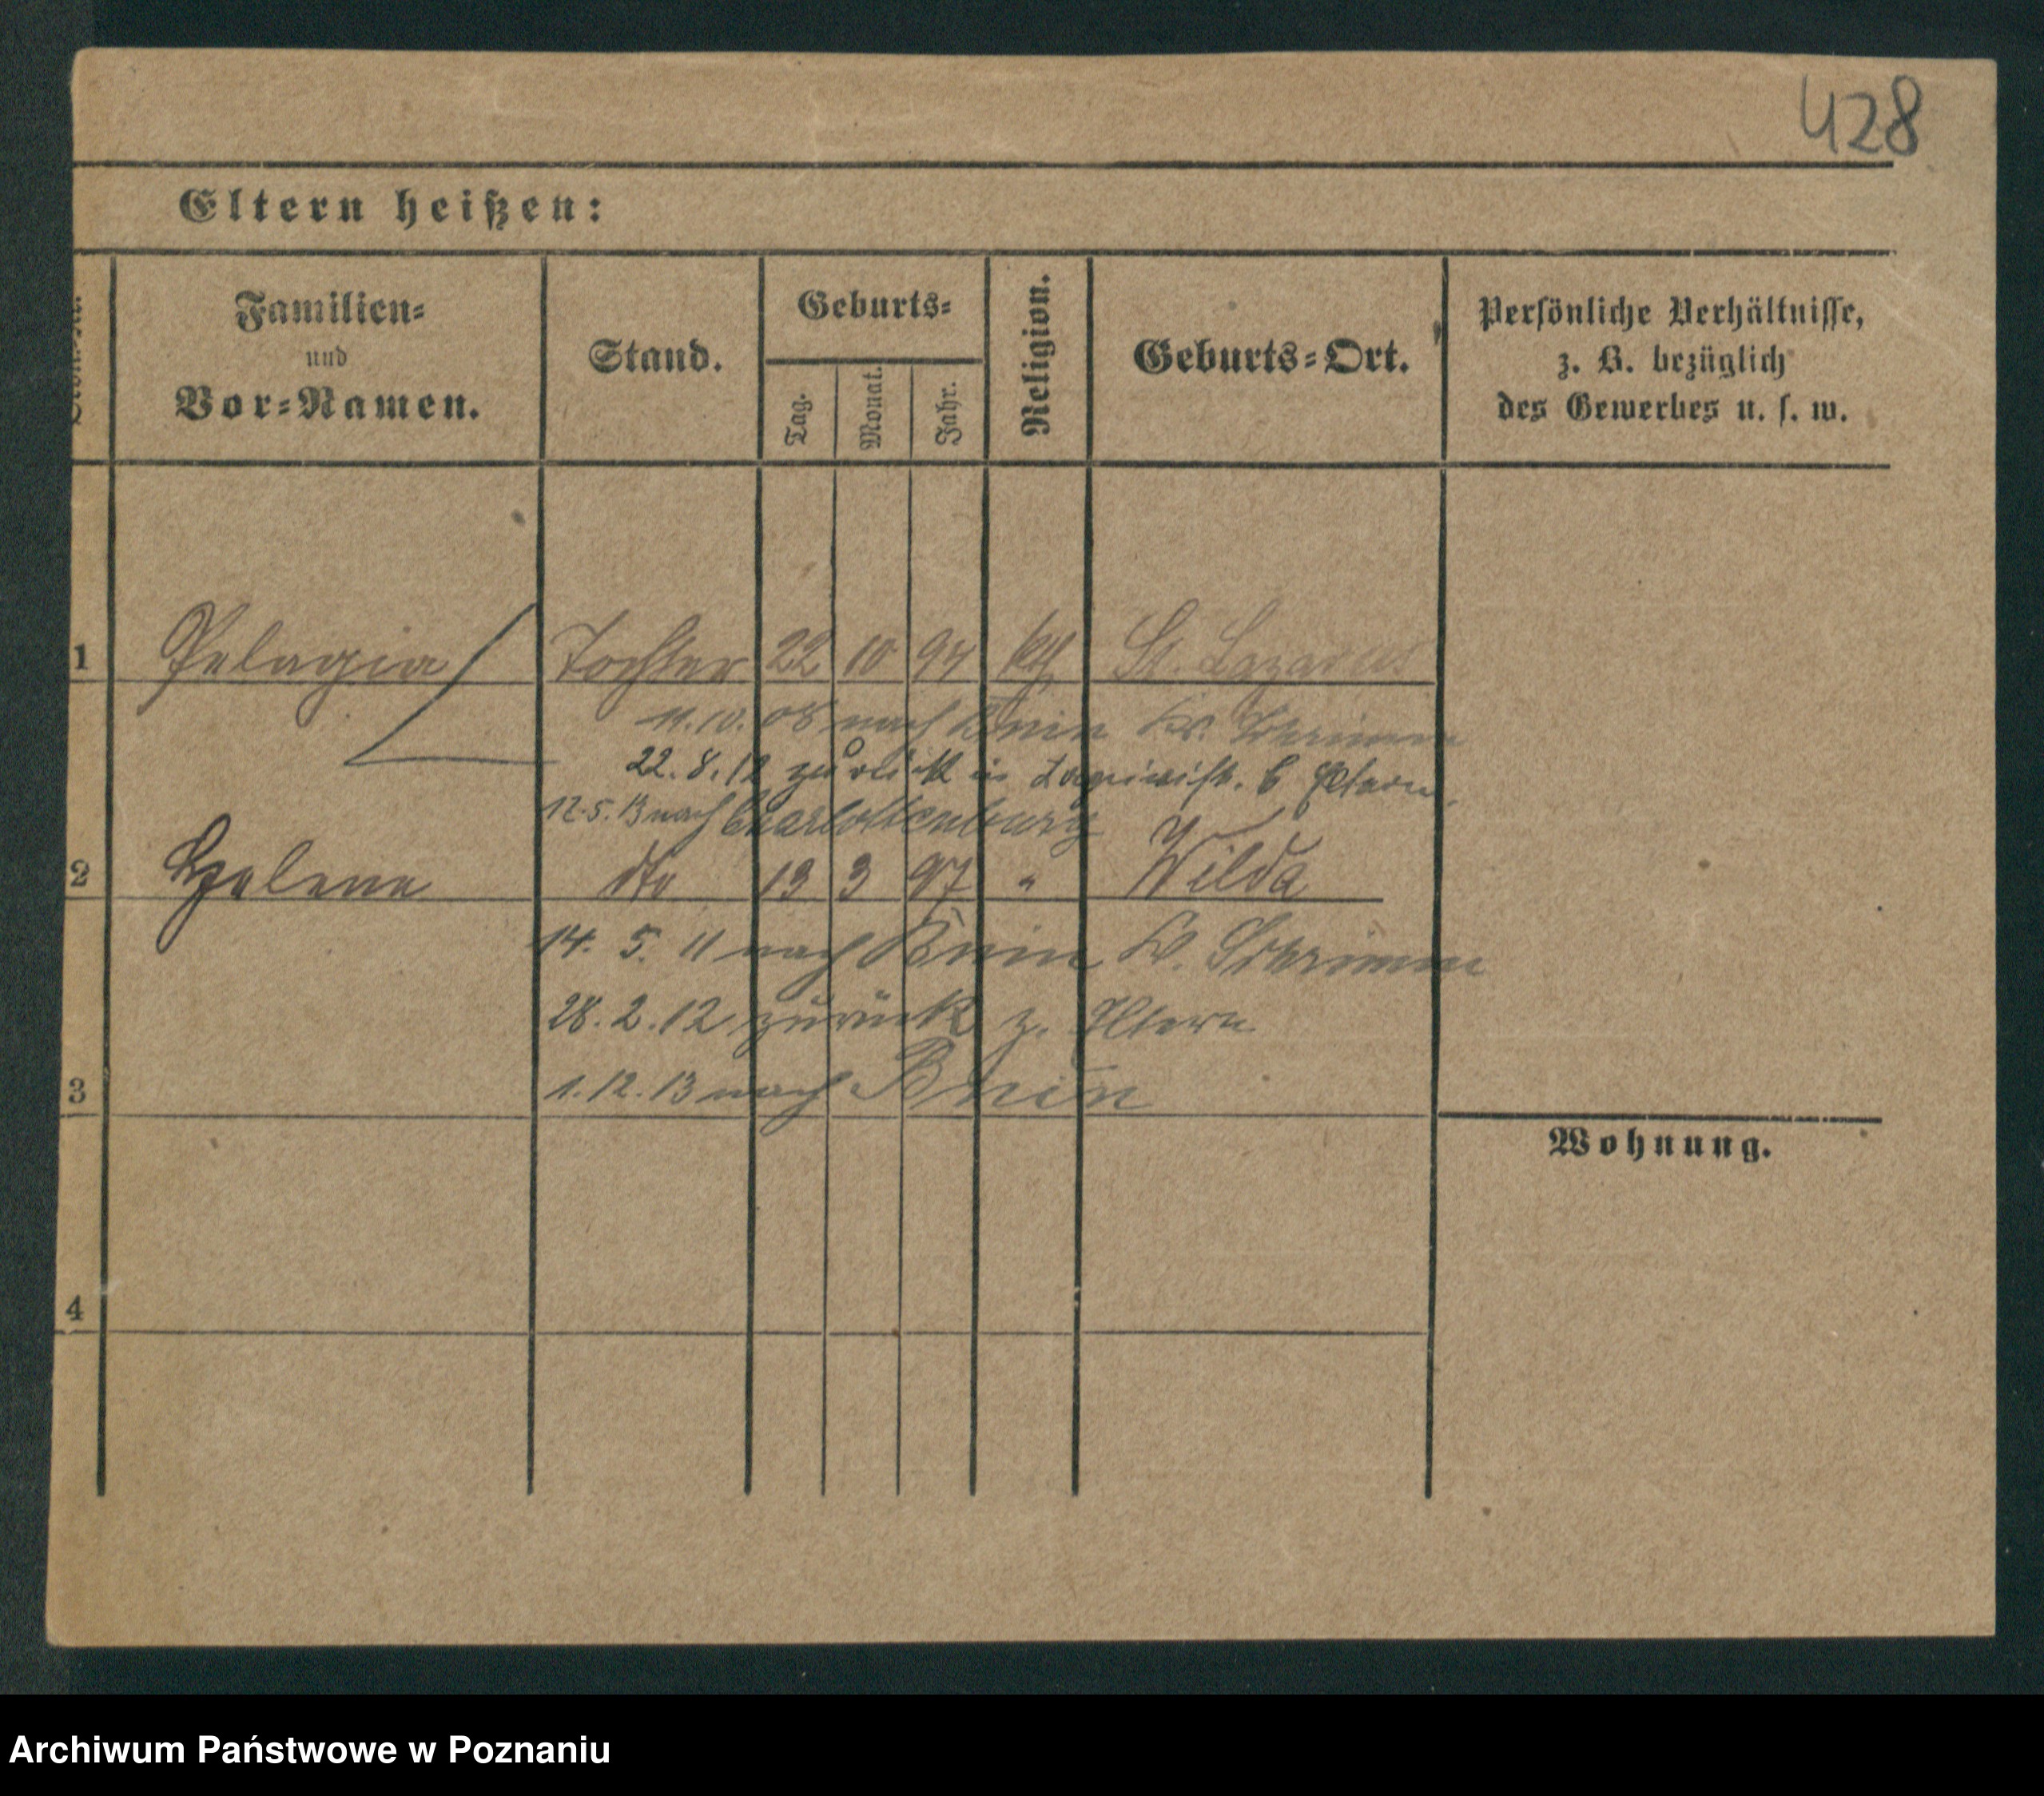 428
Eltern heißen:
Familien-
und
Vor-Namen.
Stand.
Geburts-
Tag.
Monat.
Jahr.
Religion.
Geburts-Ort.
Persönliche Verhältnisse,
z. B. bezüglich
des Gewerbes u. s. w.
1 Pelagia Tochter 22 10 94 kth St. Lazarus
11.10.08 nach Bnin Kr. Schrimm
22.8.12 zurück in b Eltern.
12.5.13 nach Charlottenburg
2 Helene dto 13 3 97 " Wilda
14. 5. 11 nach Bnin Kr. Schrimm
28.2.12 zurück z. Eltern
3 1.12.13 nach Bnin
Wohnung.
4
Archiwum Państwowe w Poznaniu